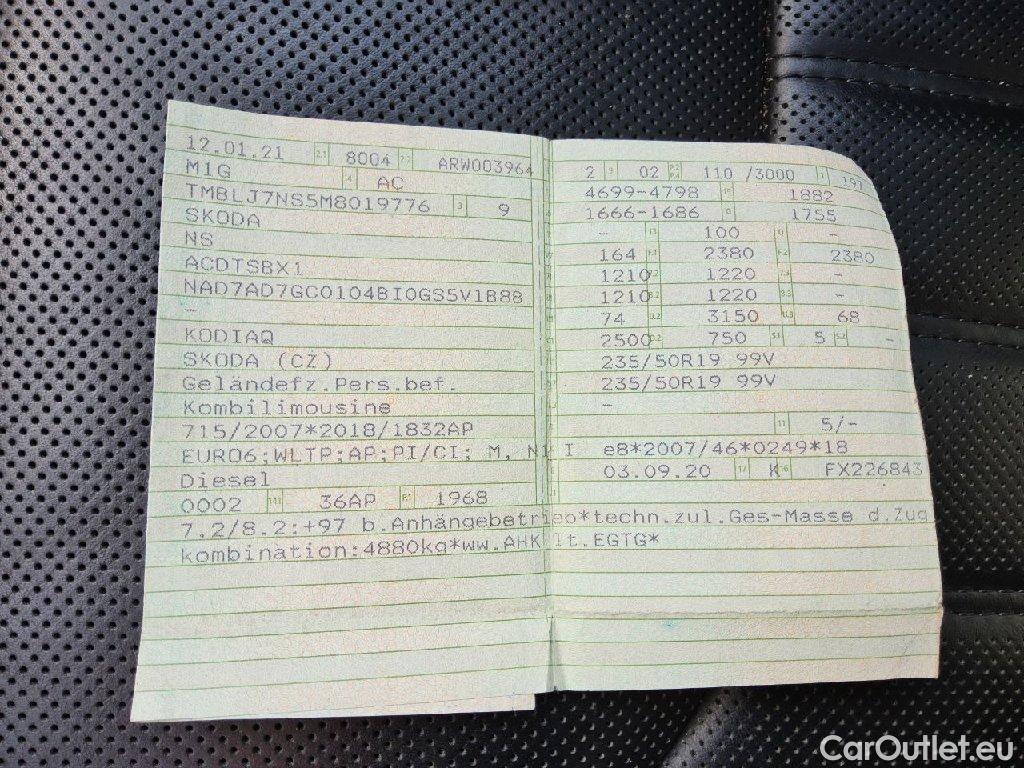 12.01.21 2.1 8004 2.2 ARW003964
M1G 4 AC
TMBLJ7NS5M8019776 3 9
SKODA
NS
ACDTSBX1
NAD7AD7GC0104BI0GS5V1B88
-
KODIAQ
SKODA (CZ)
Geländefz.Pers.bef.
Kombilimousine
715/2007*2018/1832AP
EURO6;WLTP;AP;PI/CI; M, N1 I
Diesel
0002 36AP 1968
2 9 02 110 /3000 191
4699-4798 1882
1666-1686 1755
- 100 -
164 2380 2380
1210 1220 -
1210 1220 -
74 3150 68
2500 750 5 -
235/50R19 99V
235/50R19 99V
-
11 5/-
e8*2007/46*0249*18
03.09.20 17 K 16 FX226843
7.2/8.2:+97 b.Anhängebetrieb*techn.zul.Ges-Masse d.Zug
kombination:4880kg*ww.AHK lt.EGTG*
CarOutlet.eu